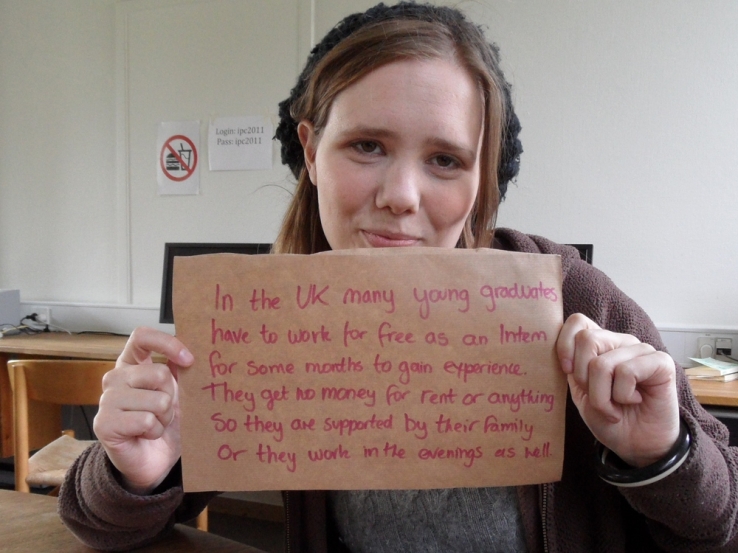 Login: ipc2011
Pass: ipc2011
In the UK many young graduates
have to work for free as an Intern
for some months to gain experience.
They get no money for rent or anything
So they are supported by their family
Or they work in the evenings as well.